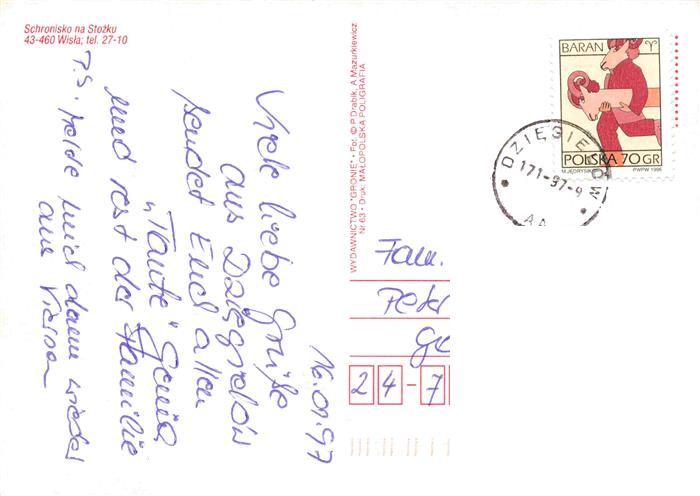 Schronisko na Stożku
43-460 Wisła; tel. 27-10
16.01.97
Viele liebe Grüße
aus Dzięgielów
sendet Euch allen
„Tante" Genia
und rest der Familie
P.S. melde mich dann wieder
aus Vierson
WYDAWNICTWO "GRONIE" • Fot. © P.Drabik, A.Mazurkiewicz
Nr 63 • Druk: MAŁOPOLSKA POLIGRAFIA
BARAN
POLSKA 70 GR
M.JĘDRYSIK PWPW 1996
DZIĘGIE
171-97-9
Fam.
Petr
Ge
24-7